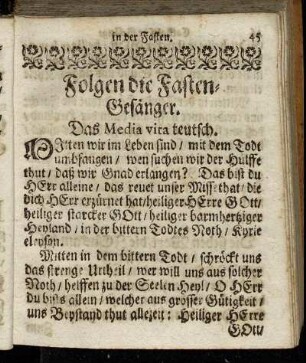 in der Fasten. 45
Folgen die Fasten-
Gesänger.
Das Media vita teutsch.
MItten wir im Leben sind / mit dem Todt
umbfangen / wen suchen wir der Hülffe
thut / daß wir Gnad erlangen? Das bist du
HErr alleine / das reuet unser Missethat / die
dich HErr erzürnet hat / heiliger HErre GOtt /
heiliger starcker GOtt / heiliger barmhertziger
Heyland / in der bittern Todtes Noth / Kyrie
eleyson.
Mitten in dem bittern Todt / schröckt uns
das strenge Urtheil / wer will uns aus solcher
Noth / helffen zu der Seelen Heyl / O HErr
du bists allein / welcher aus grosser Gütigkeit /
uns Beystand thut allezeit: Heiliger HErre
GOtt /